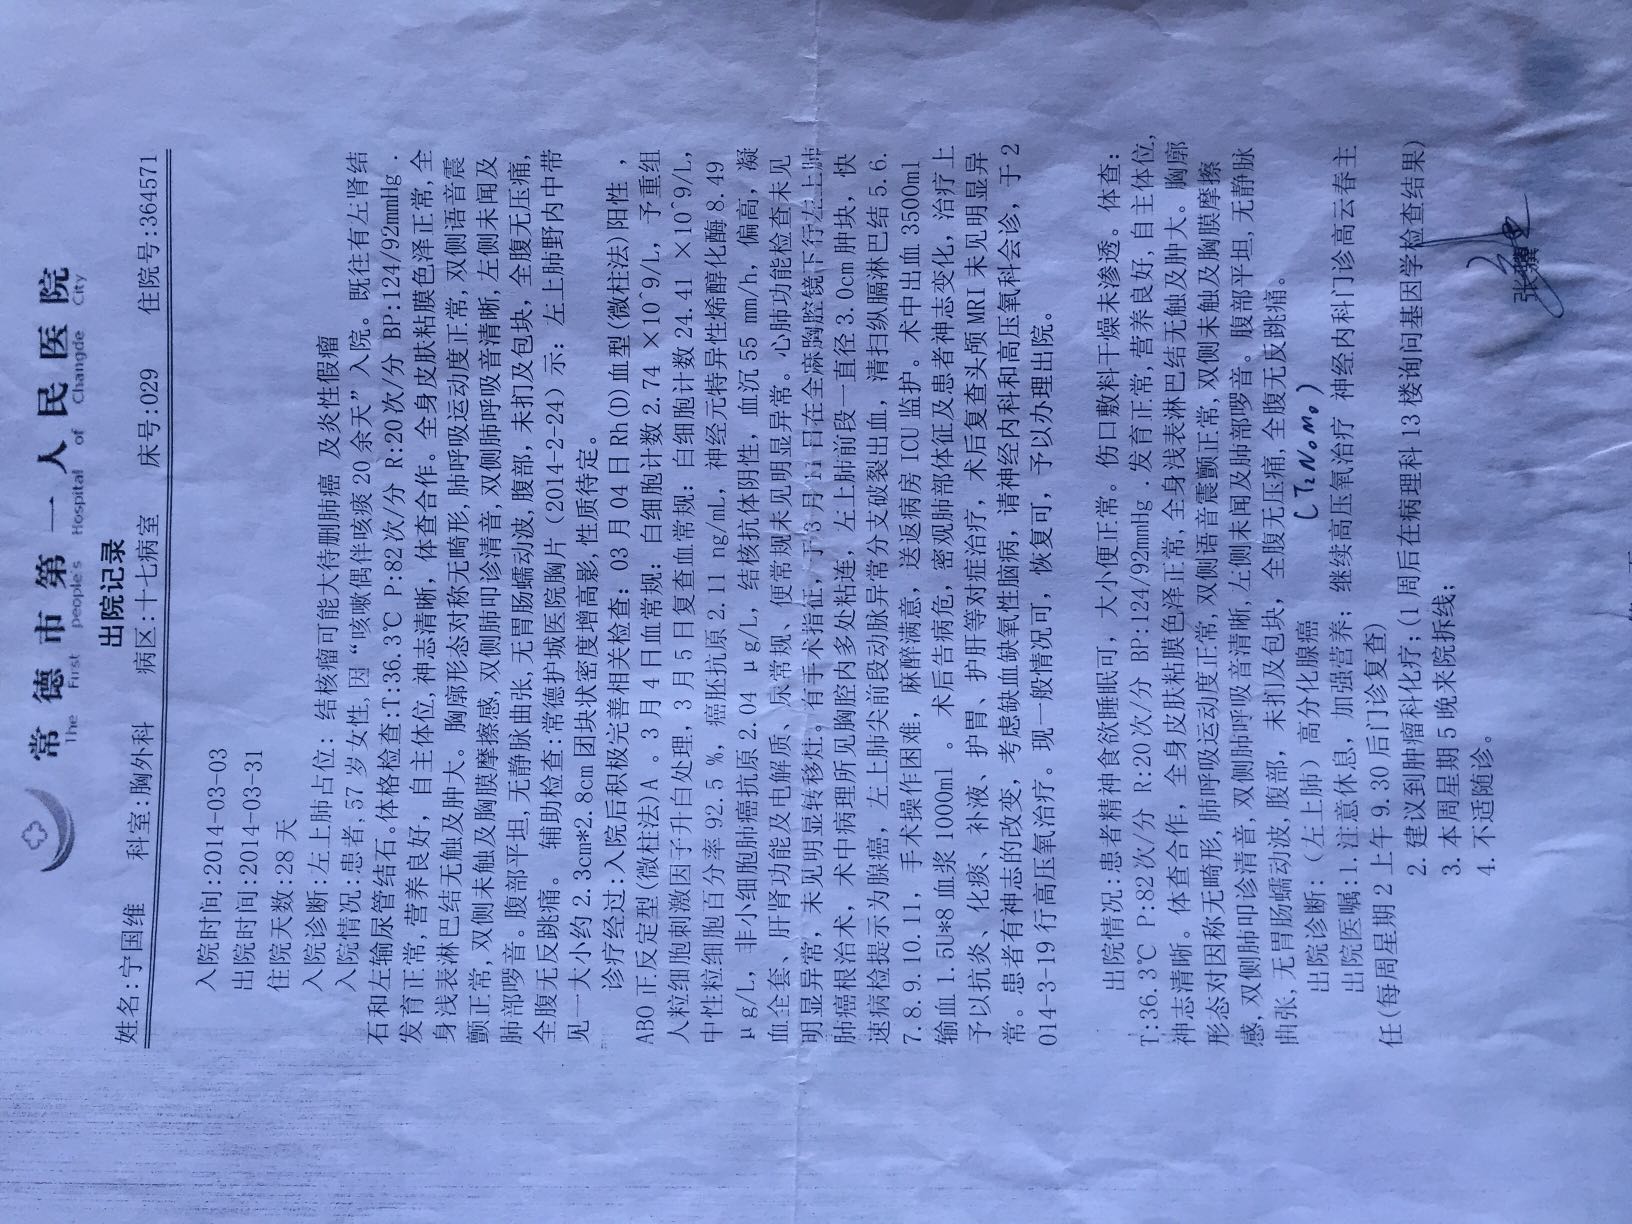 常德市第一人民医院
The First people's Hospital of Changde City
出院记录
姓名:宁国维 科室:胸外科 病区:十七病室 床号:029 住院号:364571
入院时间:2014-03-03
出院时间:2014-03-31
住院天数:28天
入院诊断:左上肺占位: 结核瘤可能大待删肺癌 及炎性假瘤
入院情况:患者,57岁女性,因“咳嗽偶伴咳痰20余天”入院。既往有左肾结
石和左输尿管结石。体格检查:T:36.3℃ P:82次/分 R:20次/分 BP:124/92mmHg.
发育正常,营养良好,自主体位,神志清晰,体查合作。全身皮肤粘膜色泽正常,全
身浅表淋巴结无触及肿大。胸廓形态对称无畸形,肺呼吸运动度正常,双侧语音震
颤正常,双侧未触及胸膜摩擦感,双侧肺叩诊清音,双侧肺呼吸音清晰,左侧未闻及
肺部啰音。腹部平坦,无静脉曲张,无胃肠蠕动波,腹部,未扪及包块,全腹无压痛,
全腹无反跳痛。 辅助检查:常德护城医院胸片(2014-2-24)示: 左上肺野内中带
见一大小约2.3cm*2.8cm团块状密度增高影,性质待定。
诊疗经过:入院后积极完善相关检查: 03月04日Rh(D)血型(微柱法)阳性,
ABO正反定型(微柱法)A 。3月4日血常规: 白细胞计数2.74 ×10^9/L, 予重组
人粒细胞刺激因子升白处理,3月5日复查血常规: 白细胞计数24.41 ×10^9/L,
中性粒细胞百分率92.5 %, 癌胚抗原2.11 ng/mL, 神经元特异性烯醇化酶8.49
μg/L, 非小细胞肺癌抗原2.04 μg/L, 结核抗体阴性, 血沉55 mm/h, 偏高, 凝
血全套、肝肾功能及电解质、尿常规、便常规未见明显异常。心肺功能检查未见
明显异常,未见明显转移灶。有手术指征,于3月11日在全麻胸腔镜下行左上肺
肺癌根治术, 术中病理所见胸腔内多处粘连, 左上肺前段一直径3.0cm肿块, 快
速病检提示为腺癌, 左上肺尖前段动脉异常分支破裂出血, 清扫纵膈淋巴结5.6.
7.8.9.10.11, 手术操作困难, 麻醉满意, 送返病房ICU监护。术中出血3500ml
输血1.5U*8血浆1000ml 。术后告病危, 密观肺部体征及患者神志变化, 治疗上
予以抗炎、化痰、补液、护胃、护肝等对症治疗, 术后复查头颅MRI未见明显异
常。患者有神志的改变, 考虑缺血缺氧性脑病, 请神经内科和高压氧科会诊, 于2
014-3-19行高压氧治疗。现一般情况可, 恢复可, 予以办理出院。
出院情况:患者精神食欲睡眠可, 大小便正常。伤口敷料干燥未渗透。体查:
T:36.3℃ P:82次/分 R:20次/分 BP:124/92mmHg .发育正常,营养良好,自主体位,
神志清晰。体查合作, 全身皮肤粘膜色泽正常,全身浅表淋巴结无触及肿大。胸廓
形态对因称无畸形,肺呼吸运动度正常,双侧语音震颤正常,双侧未触及胸膜摩擦
感,双侧肺叩诊清音,双侧肺呼吸音清晰,左侧未闻及肺部啰音。腹部平坦,无静脉
曲张,无胃肠蠕动波,腹部,未扪及包块, 全腹无压痛,全腹无反跳痛。
出院诊断: (左上肺)高分化腺癌 (T₂N₀M₀)
出院医嘱:1.注意休息, 加强营养; 继续高压氧治疗 神经内科门诊高云春主
任(每周星期2上午9.30后门诊复查)
2.建议到肿瘤科化疗;(1周后在病理科13楼询问基因学检查结果)
3.本周星期5晚来院拆线;
4.不适随诊。